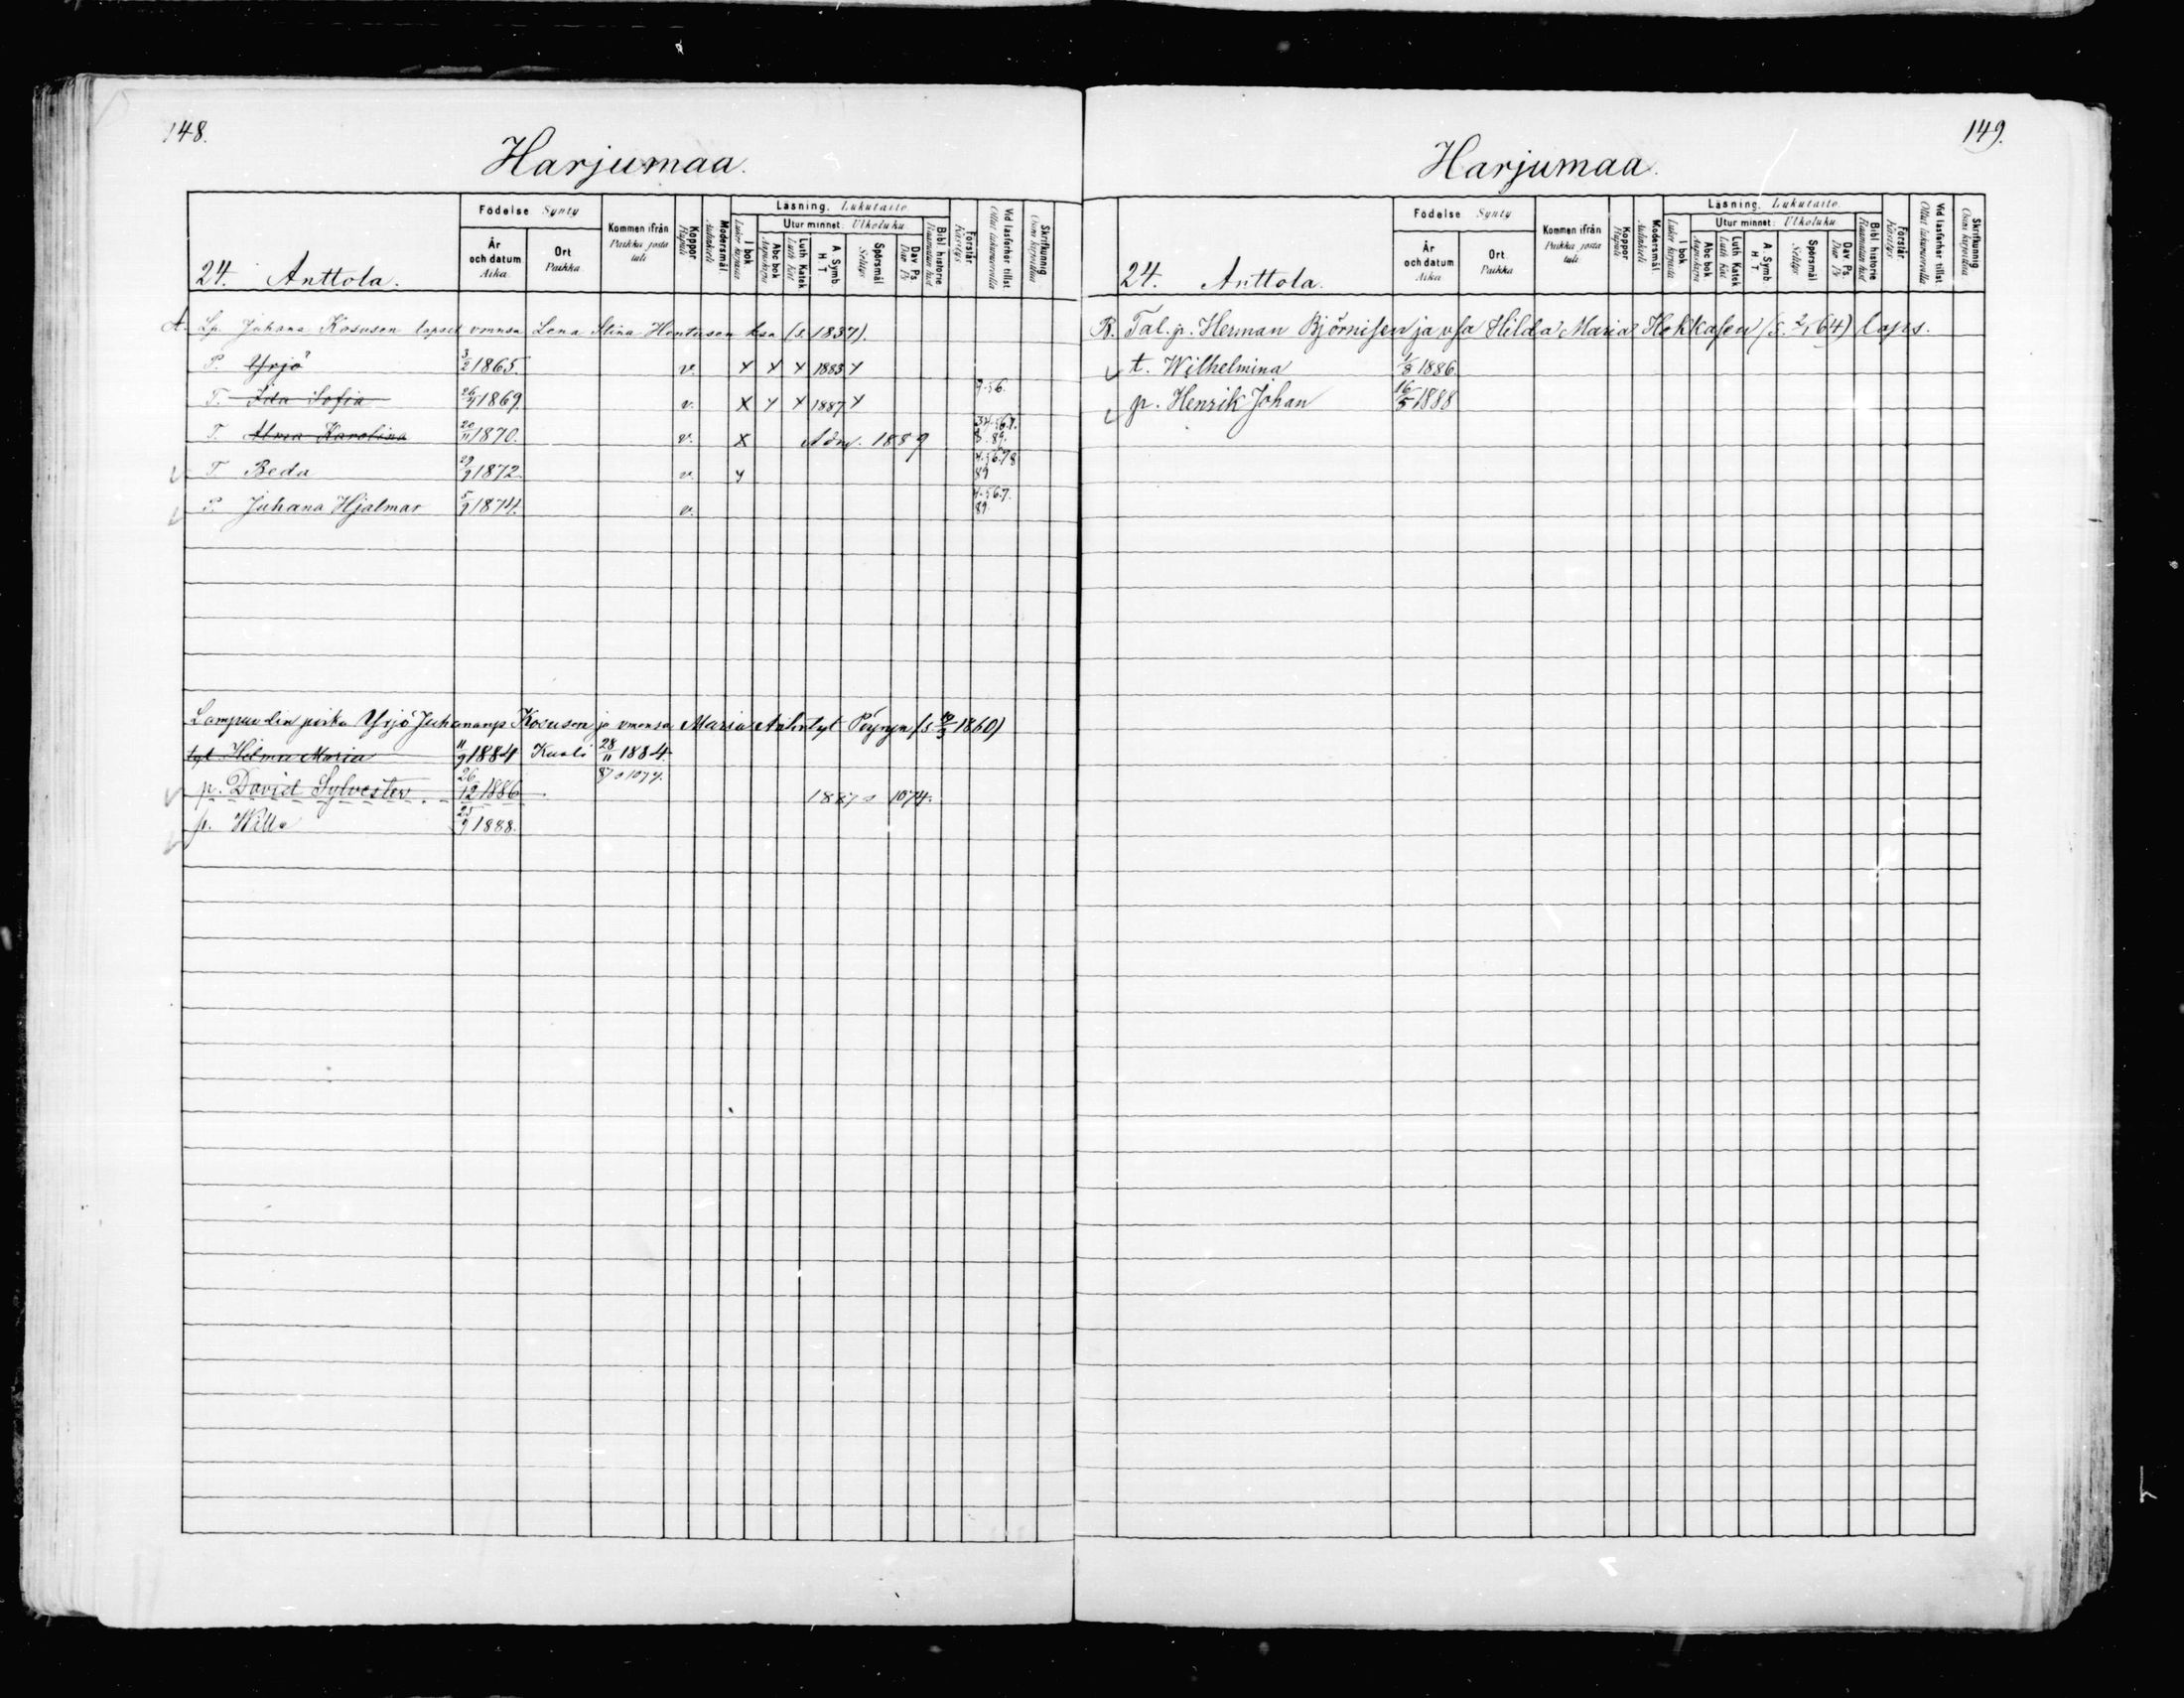 148.
Harjumaa.
24. Anttola.
Födelse Synty
År och datum Aika
Ort Paikka
Kommen ifrån Paikka josta tuli
Koppor Rupuli
Modersmål. Äidinkieli
Läsning. Lukutaito
I bok Lukee kirjasta
Utur minnet: Ulkoluku
Abc bok Aapiskirja
Luth Katek Luth Kat
A Symb. H T
Spörsmål Selitys
Dav Ps. Dav Ps
Bibl. historie Raamatun hist
Förstår Käsitys
Vid läsförhör tillst. Ollut lukuvuorolla
Skrifkunnig Osaa kirjoittaa
A. Lp. Juhana Kososen lapset vmnsa Lena Stina Hentusen ksa (s. 1837).
P. Yrjö 3/2 1865. v. x x x 1883 x
T. Ida Sofia 26/4 1869. v. x x x 1887 x 4.56.
T. Alma Karolina 20/11 1870. v. x Adm. 1889 34.567. 8.89.
T Beda 29/9 1872. v. x 4.5678 89
P. Juhana Hjalmar 5/9 1874. v. 4.567. 89
Lampuodin poika Yrjö Juhananp. Kososen ja vmonsa Maria Antintyt Pöyryn (s. 1860)
tyt Hilma Maria 11/9 1884 Kuoli 28/11 1884.
87 s 1074.
p. David Sylvester 26/12 1886 1887 s 1074.
p. Wille 25/9 1888.
149.
Harjumaa.
24. Anttola.
Födelse Synty
År och datum Aika
Ort Paikka
Kommen ifrån Paikka josta tuli
Koppor Rupuli
Modersmål. Äidinkieli
Läsning. Lukutaito
I bok Lukee kirjasta
Utur minnet: Ulkoluku
Abc bok Aapiskirja
Luth Katek Luth Kat
A Symb H T
Spörsmål Selitys
Dav Ps. Dav Ps
Bibl. historie Raamatun hist
Förstår Käsitys
Vid läsförhör tillst. Ollut lukuvuorolla
Skrifkunnig Osaa kirjoittaa
B. Tal. p. Herman Björnisen ja vsa Hilda Maria Hokkasen 64) laps.
t. Wilhelmina 1/8 1886
p. Henrik Johan 16/5 1888